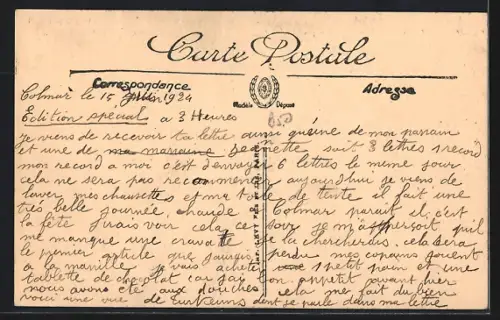 Carte Postale
Correspondance
Adresse
Modèle Déposé
Colmar le 15 1924
Edition special à 3 Heures
Je viens de recevoir ta lettre ainsi qu'une de mon parrain
et une de ma marraine Ginette soit 3 lettres record
mon record a moi c'est d'envoyer 6 lettres le meme jour
cela ne sera pas recommencé aujourd'hui je viens de
laver mes chaussettes et ma toile de tente il fait une
très belle journée chaude Colmar parait il c'est
la fête j'irais voir cela ce soir je m'aperçoit qu'il
me manque une cravate je la chercherais. cela sera
le premier article que j'aurais perdu mes copains jouent
a la manille je vais acheté 1 petit pain et une
tablette de chocolat car j'ai bon appetit avant hier
nous avons été aux douches cela me fait du bien
voici une vue de turkeims dont je parle dans ma lettre